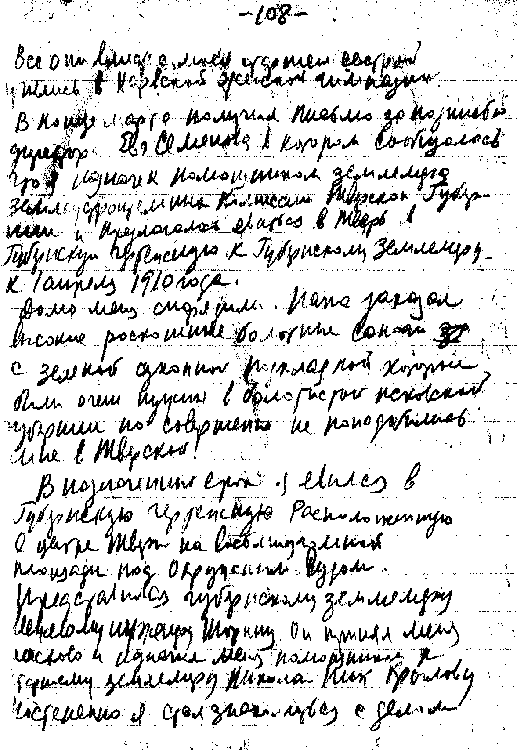 -108-
Все они
в Псковской женской гимназии
В конце марта получил письмо за подписью
директора Семенова в котором сообщалось
что я назначен помощником землемера
Землеустроительных Комиссии Тверской Губер-
нии и предлагалось явиться в Тверь в
Губернскую чертежную к Губернскому Землемеру
к 1 апреля 1910 года.
Дома меня снарядили. Папа заказал
высокие роскошные болотные сапоги
с зеленой суконной подкладкой которые
были очень нужны в болотистой псковской
губернии но совершенно не понадобились
мне в Тверской.
В назначенный срок я явился в
Губернскую чертежную Расположенную
в центре Твери на
площади под Окружным Судом.
Представился губернскому землемеру
Он принял меня
ласково и назначил меня помощником к
землемеру Крылову
Постепенно я стал знакомиться с делом